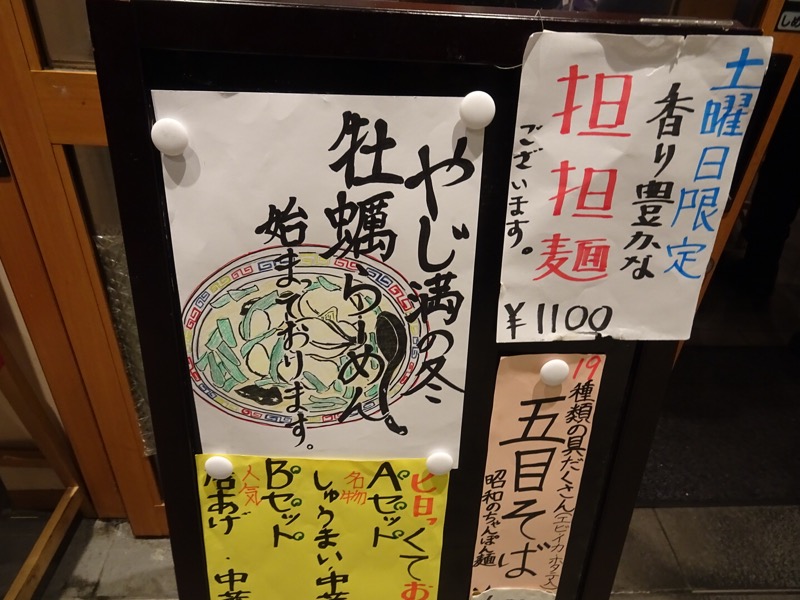 やじ満の冬
牡蠣らーめん
始まっております。
土曜日限定
香り豊かな
担担麺
ございます。
¥1100
19種類の具だくさん(エビイカホタテ入)
五目そば
昭和のちゃんぽん麺
くてお
Aセット
名物
しゅうまい 中華
Bセット
人気
唐あげ・中華
しめ